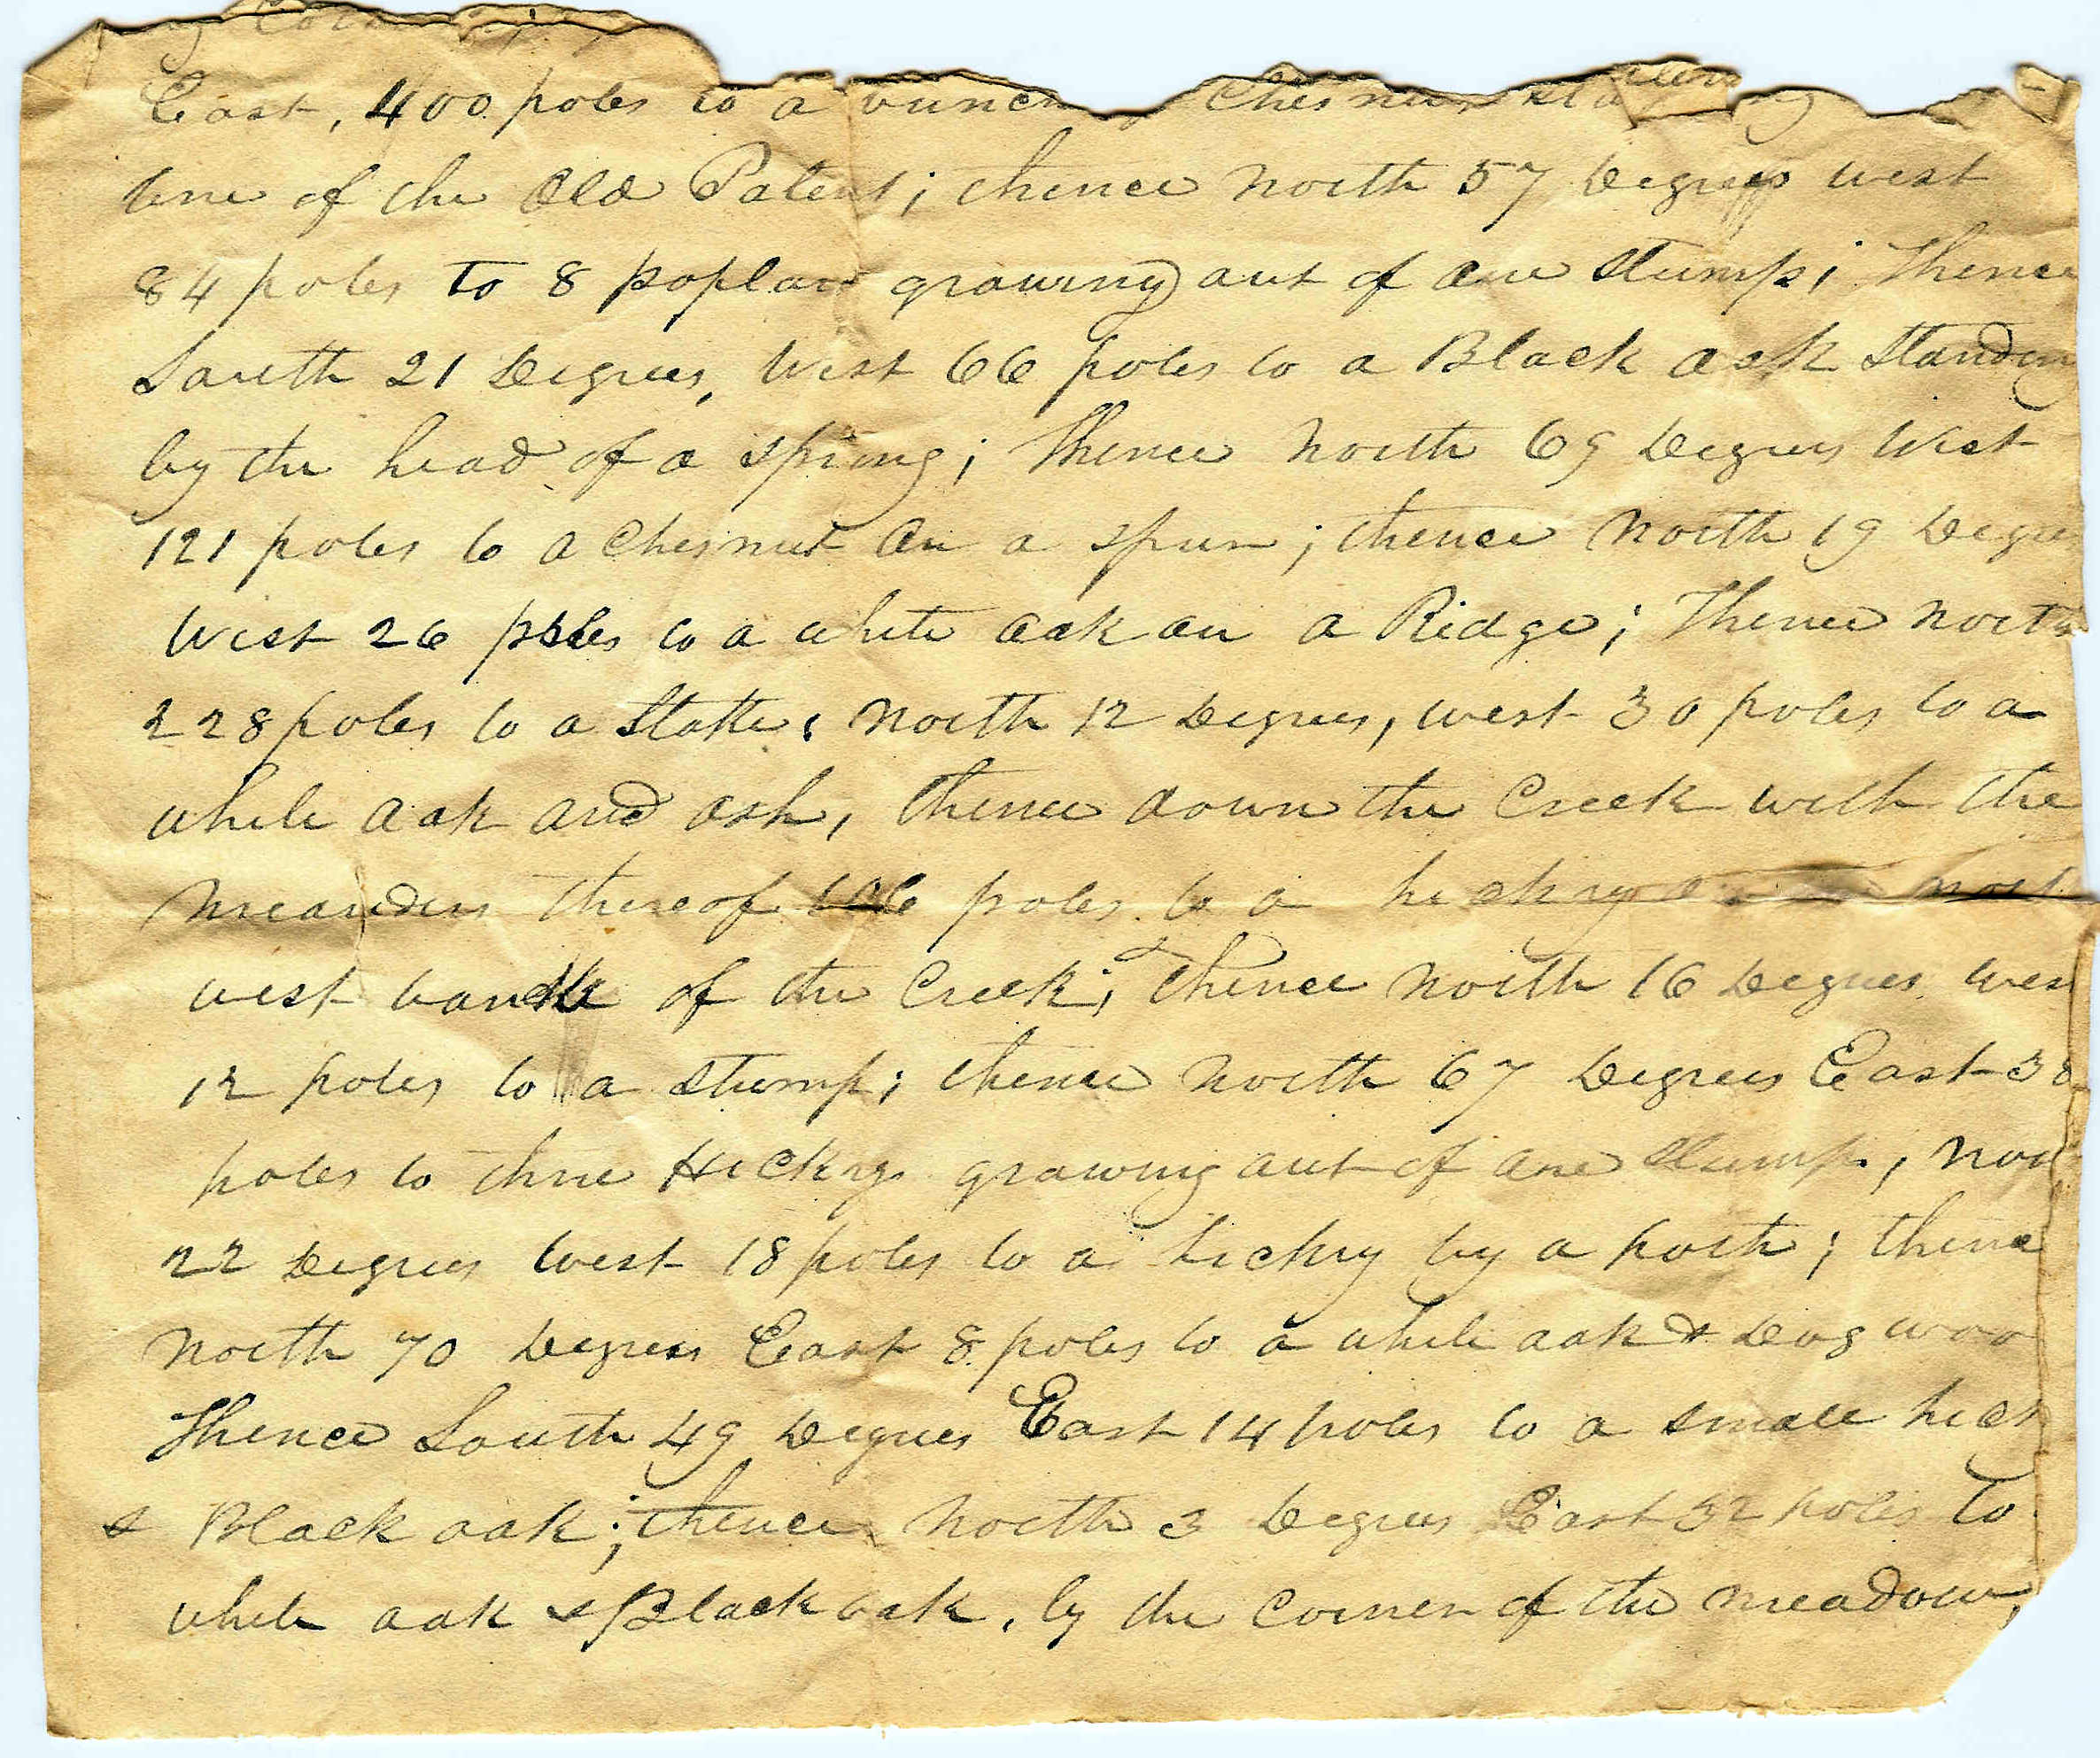 East, 400 poles to a bunch Chesnut
line of the Old Patent; thence north 57 Degrees west
84 poles to 8 poplars growing out of one Stump; Thence
South 21 Degrees, West 66 poles to a Black oak Standing
by the head of a spring; Thence North 69 Degrees West
121 poles to a Chesnut on a spur; thence North 19 Degrees
West 26 poles to a white oak on a Ridge; Thence North
228 poles to a Stake; North 12 Degrees, west 30 poles to a
white oak and ash, thence down the Creek with the
meanders thereof 106 poles to a hickry
west bank of the Creek; thence North 16 Degrees west
12 poles to a stump; thence north 67 Degrees East 38
poles to three Hickrys growing out of one Stump, nor
22 Degrees West 18 poles to a hickry by a path; thence
North 70 Degrees East 8 poles to a white oak & Dogwoo
Thence South 49 Degrees East 14 poles to a small hick
& Black oak; thence North 3 Degrees East 32 poles To
white oak & Black oak, by the Corner of the meadow,